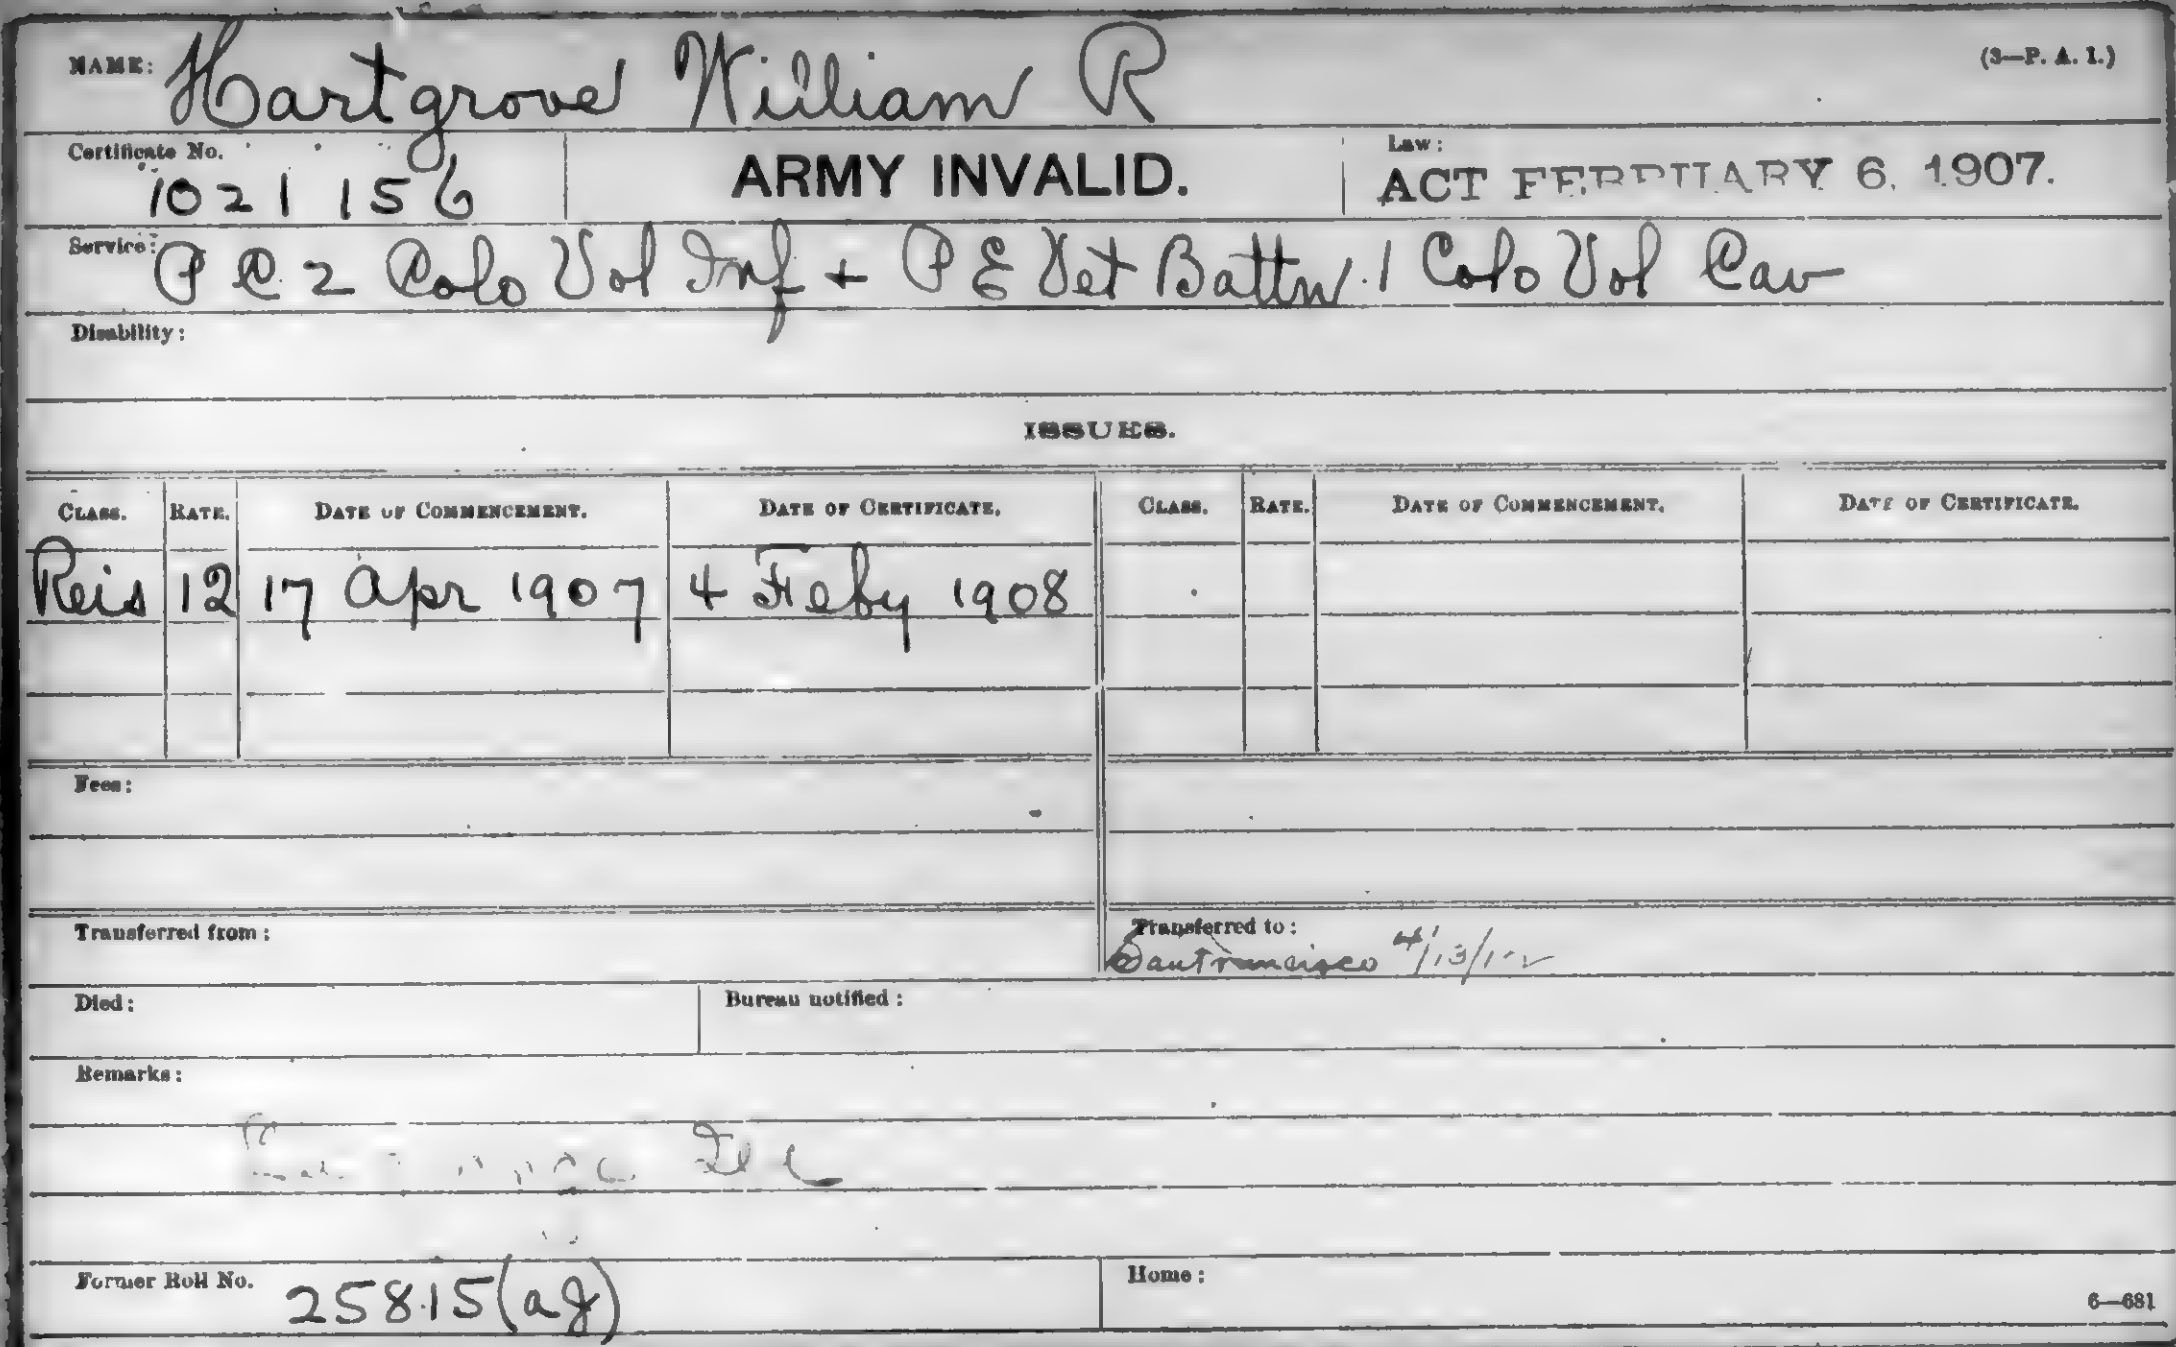 (3—P. A. I.)
NAME: Hartgrove William R
Certificate No. 1021 156
ARMY INVALID.
Law: ACT FEBRUARY 6, 1907.
Service: P C 2 Colo Vol Inf + P E Vet Battn 1 Colo Vol Cav
Disability:
ISSUES.
CLASS. RATE. DATE OF COMMENCEMENT. DATE OF CERTIFICATE. CLASS. RATE. DATE OF COMMENCEMENT. DATE OF CERTIFICATE.
Reis 12 17 Apr 1907 4 Feby 1908
Fees:
Transferred from:
Transferred to:
San Francisco 4/13/12
Died:
Bureau notified:
Remarks:
Former Roll No. 25815 (ag)
Home:
6—681